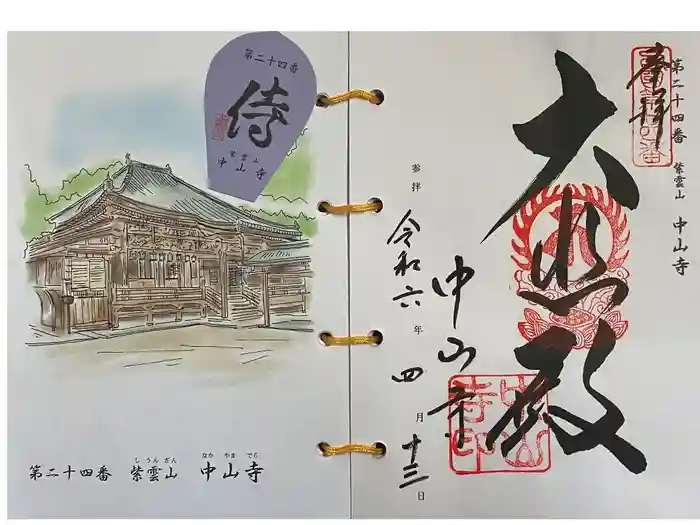 第二十四番
侍
紫雲山
中山寺
しうんざん なかやまでら
第二十四番 紫雲山 中山寺
第二十四番 紫雲山 中山寺
奉拝
大悲殿
中山寺
中山寺印
参拝 令和六年四月十三日